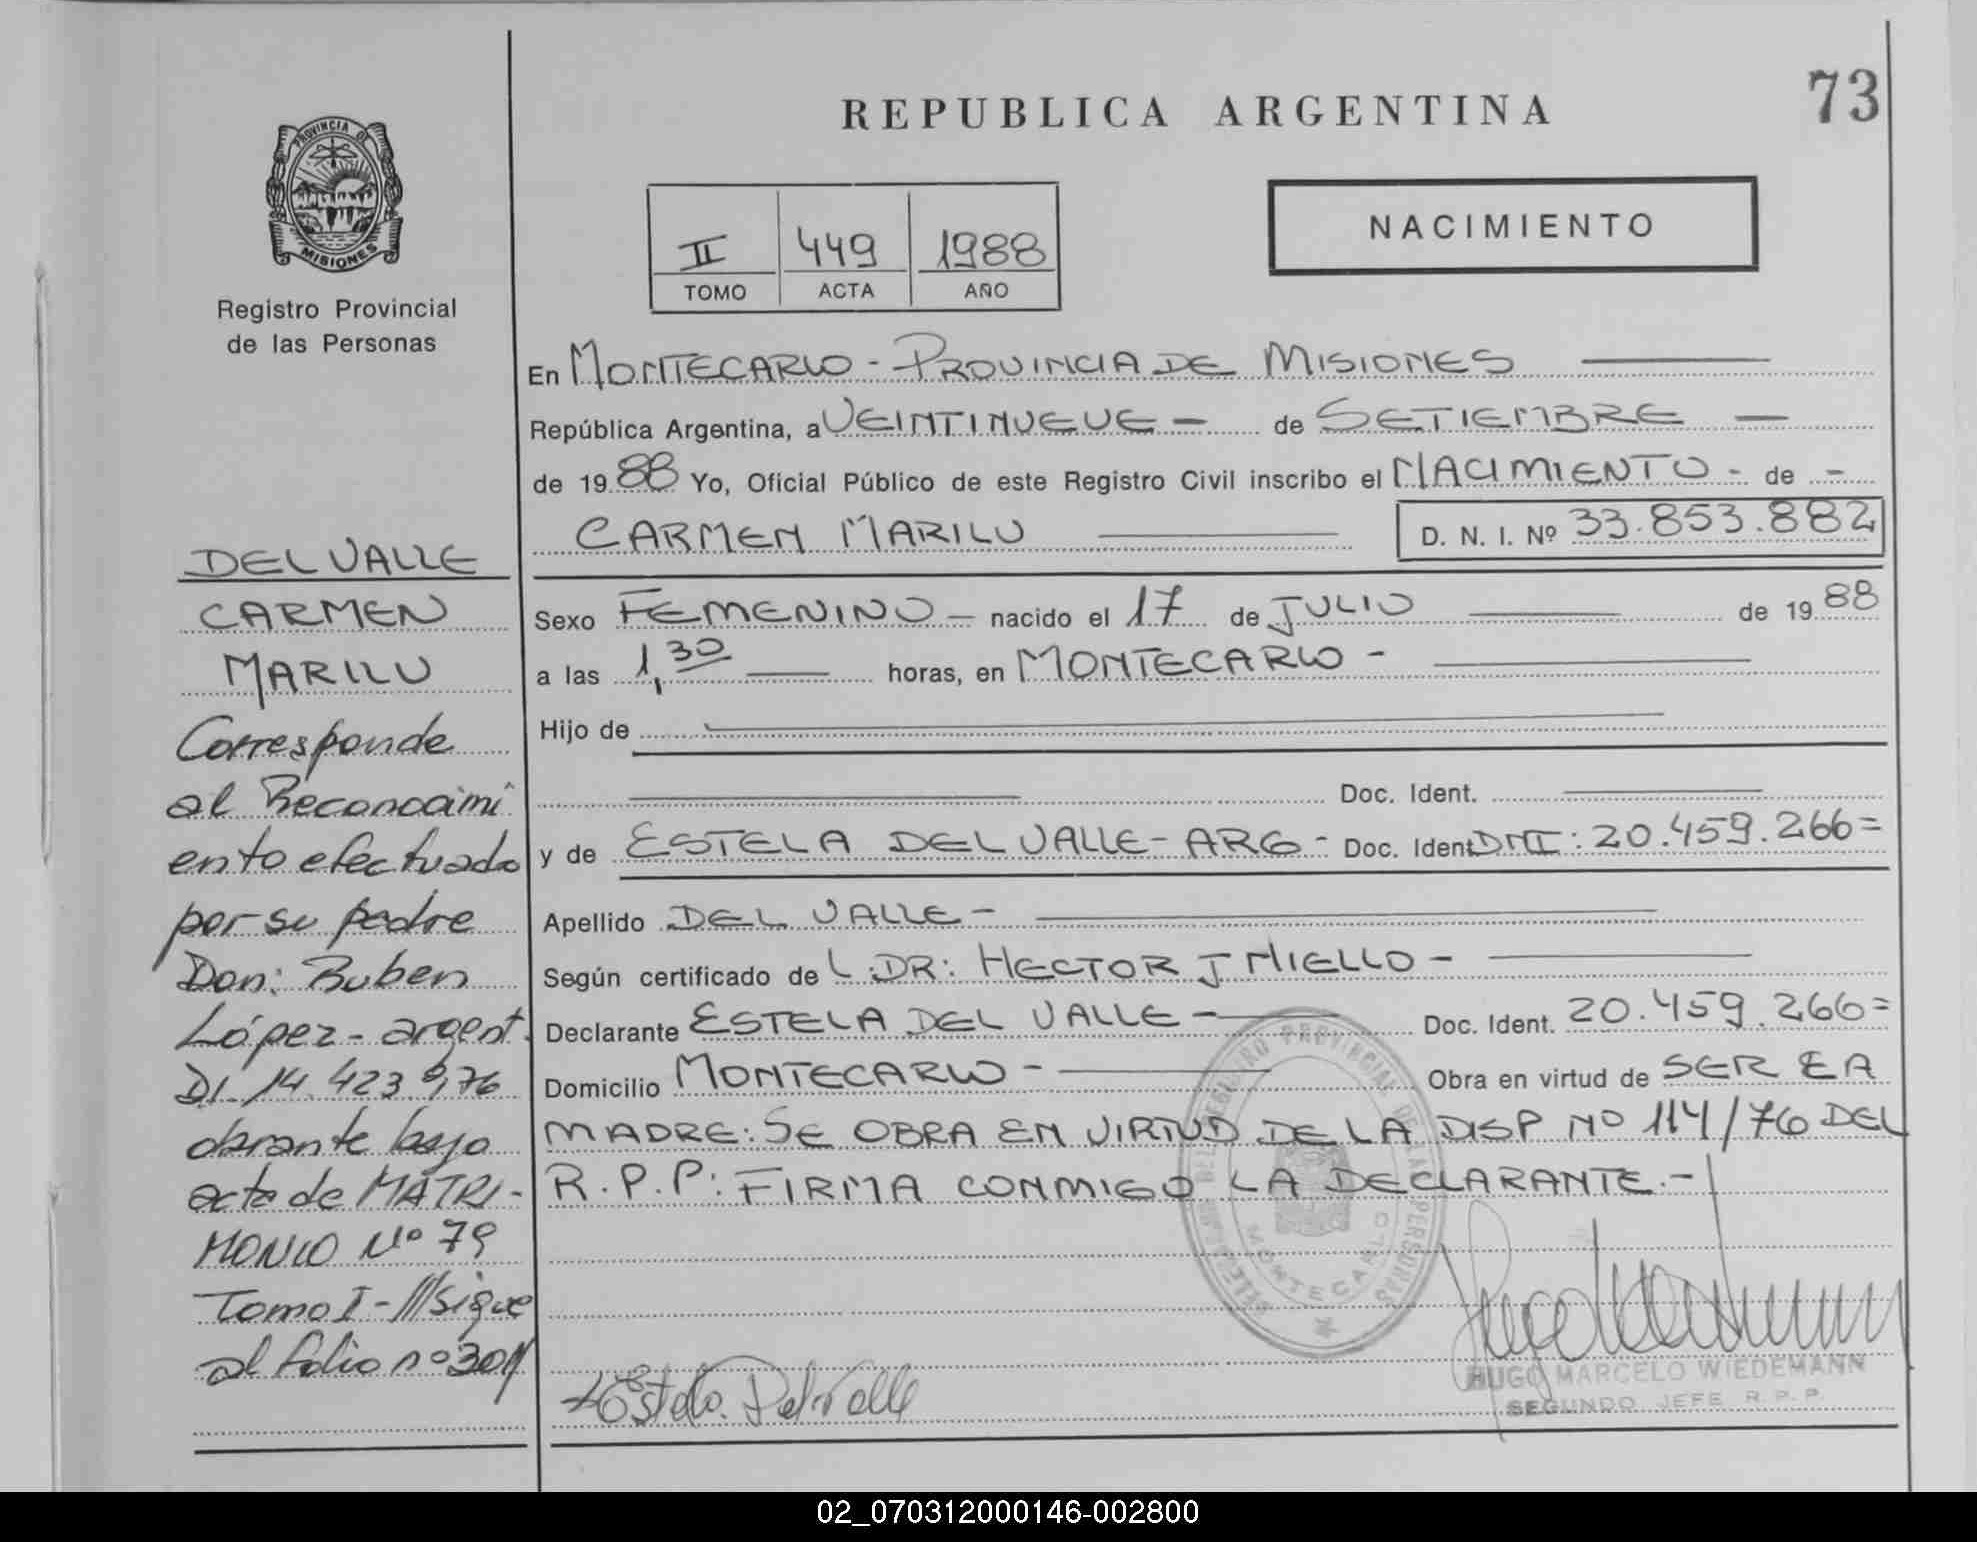 73
REPUBLICA ARGENTINA
PROVINCIA DE
MISIONES
Registro Provincial
de las Personas
II 449 1988
TOMO ACTA AÑO
NACIMIENTO
En MONTECARLO - PROVINCIA DE MISIONES
República Argentina, a VEINTINUEVE - de SETIEMBRE -
de 1988 Yo, Oficial Público de este Registro Civil inscribo el NACIMIENTO - de -
CARMEN MARILU D. N. I. Nº 33.853.882
Sexo FEMENINO - nacido el 17 de JULIO de 1988
a las 1,30 horas, en MONTECARLO -
Hijo de
Doc. Ident.
y de ESTELA DEL VALLE - ARG - Doc. Ident DNI: 20.459.266=
Apellido DEL VALLE -
Según certificado de L. DR: HECTOR J MIELLO -
Declarante ESTELA DEL VALLE - Doc. Ident. 20.459.266=
Domicilio MONTECARLO - Obra en virtud de SER EA
MADRE: SE OBRA EN VIRTUD DE LA DISP Nº 114/76 DEL
R.P.P: FIRMA CONMIGO LA DECLARANTE.-
DEL VALLE
CARMEN
MARILU
Corresponde
al Reconocimi
ento efectuado
por su padre
Don: Ruben
López - argent.
DI. 14.423.976
obrante bajo
acta de MATRI-
MONIO Nº 79
Tomo I - ///sigue
al folio nº 301//
Estela Del Valle
MONTECARLO
HUGO MARCELO WIEDEMANN
SEGUNDO JEFE R.P.P.
02_070312000146-002800